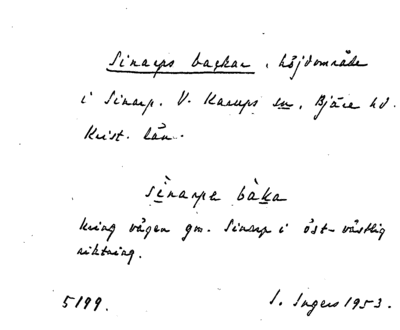 Sinarps backar, höjdområde
i Sinarp. V. Karups sn, Bjäre hd.
Krist. län.
sìnarpe bàka
kring vägen gm. Sinarp i öst-västlig
riktning.
5199. I. Ingers 1953.